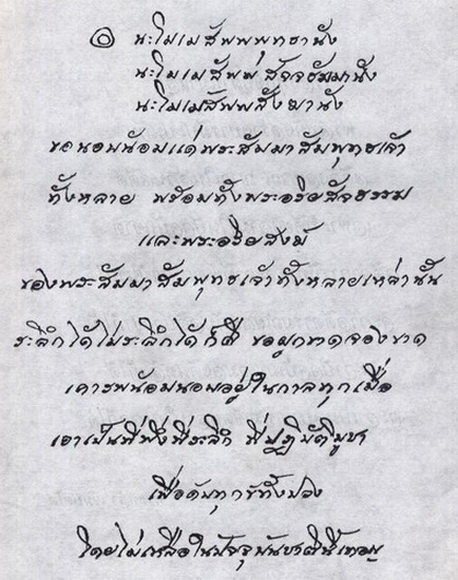 ๏ นะโมเมสัพพพุทธานัง
นะโมเมสัพพสัจจธัมมานัง
นะโมเมสัพพสังฆานัง
ขอนอบน้อมแด่พระสัมมาสัมพุทธเจ้า
ทั้งหลาย พร้อมทั้งพระอริยสัจธรรม
และพระอริยสงฆ์
ของพระสัมมาสัมพุทธเจ้าทั้งหลายเหล่านั้น
ระลึกได้ไม่ระลึกได้ก็ดี ขอผูกขาดจองขาด
เคารพน้อมนอบอยู่ในกาลทุกเมื่อ
เอาเป็นที่พึ่งที่ระลึก ที่ปฏิบัติบูชา
เพื่อดับทุกข์ทั้งปวง
โดยไม่เหลือในปัจจุบันชาตินี้เทอญ